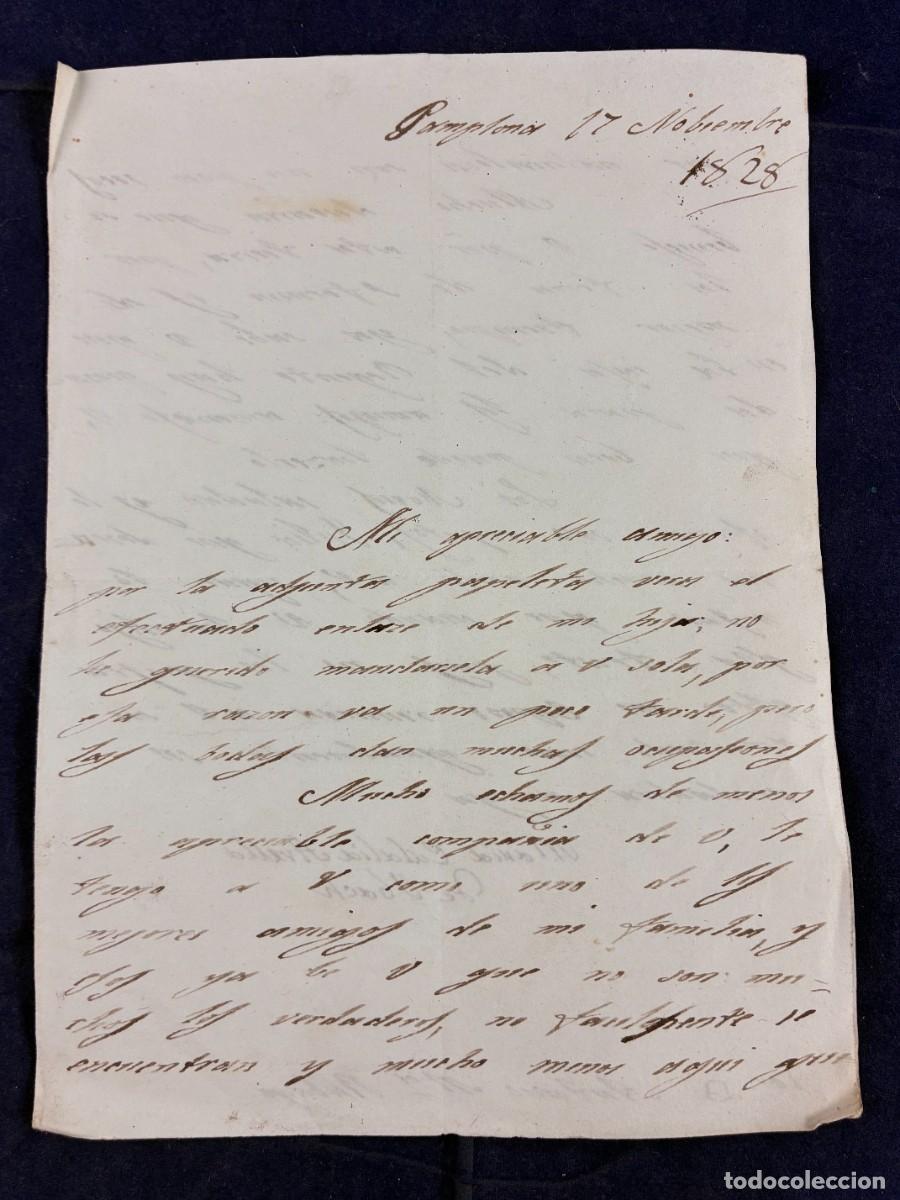 Pamplona 17 Nobiembre
1828
Mi apreciable amigo:
por la adjunta papeleta vera el
efectuado enlaze de mi hija; no
he querido mandarsela a v sola, por
esa razon va un poco tarde, pero
las bodas dan muchas ocupasiones
Mucho echamos de menos
la apreciable compañia de v, le
tengo a v como uno de los
mejores amigos de mi familia, y
estos ya be v que no son mu-
chos los verdaderos, no facilmente se
encuentran y mucho menos aqui que
todocoleccion